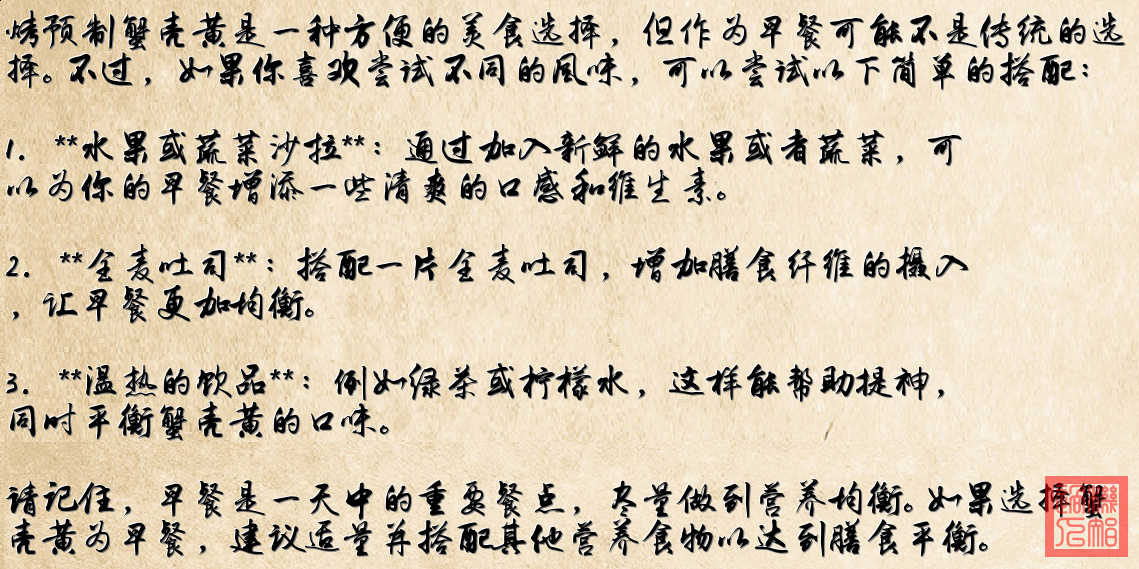 烤预制蟹壳黄是一种方便的美食选择，但作为早餐可能不是传统的选
择。不过，如果你喜欢尝试不同的风味，可以尝试以下简单的搭配：
1. **水果或蔬菜沙拉**：通过加入新鲜的水果或者蔬菜，可
以为你的早餐增添一些清爽的口感和维生素。
2. **全麦吐司**：搭配一片全麦吐司，增加膳食纤维的摄入
，让早餐更加均衡。
3. **温热的饮品**：例如绿茶或柠檬水，这样能帮助提神，
同时平衡蟹壳黄的口味。
请记住，早餐是一天中的重要餐点，尽量做到营养均衡。如果选择蟹
壳黄为早餐，建议适量并搭配其他营养食物以达到膳食平衡。